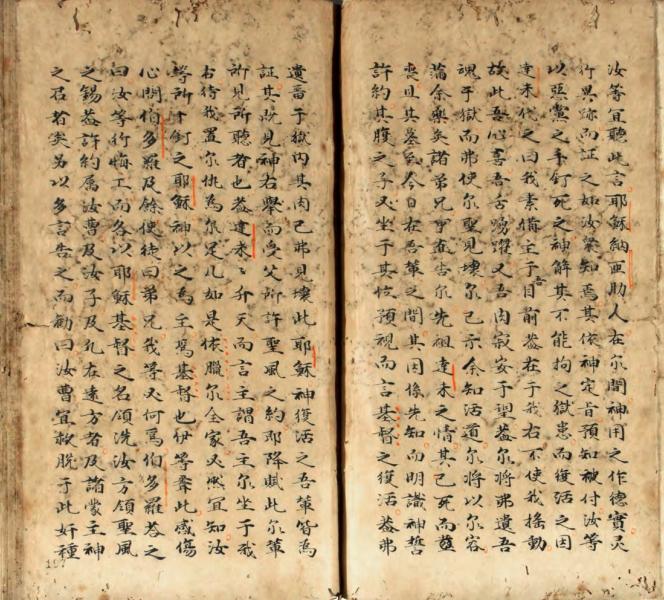 汝等宜聽此言耶穌納匝肋人在尔間神用之作德實灵
行異跡而証之如汝輩知焉其依神定旨預知被付汝等
以惡黨之手釘死之神解其不能拘之獄患而復活之因
達未代之曰我素備主于吾目前葢在于我右不使我搖動
故此吾心喜吾舌踴躍又吾肉寂安于望葢尔將弗遺吾
魂于獄而弗使尔聖見壞尔已示余知活道尔將以尔容
蒲余樂矣諸弟兄乎敢告尔先祖達未之情其已死而塟
喪且其墓至今日在吾輩之間其因係先知而明識神誓
許約其腹之子必坐于其位預視而言基督之復活葢弗
遺畱于獄內其肉已弗見壞此耶穌神復活之吾輩皆為
証其既見神右舉而受父所許聖風之約即降賦此尔輩
所見所聽者也葢達未升天而言主謂吾主尔坐于我
右待我置尔仇為尔足几如是依臘尔全家必然宜知汝
等所十釘之耶穌神以之為主為基督也伊等聞此感傷
心問伯多羅及餘使徒曰弟兄我等必何為伯多羅荅之
曰汝等行悔工而各以耶穌基督之名領洗汝方領聖風
之錫葢許約属汝曹及汝子及凡在遠方者及諸蒙主神
之召者矣另以多言告之而勸曰汝曹宜救脫于此奸種